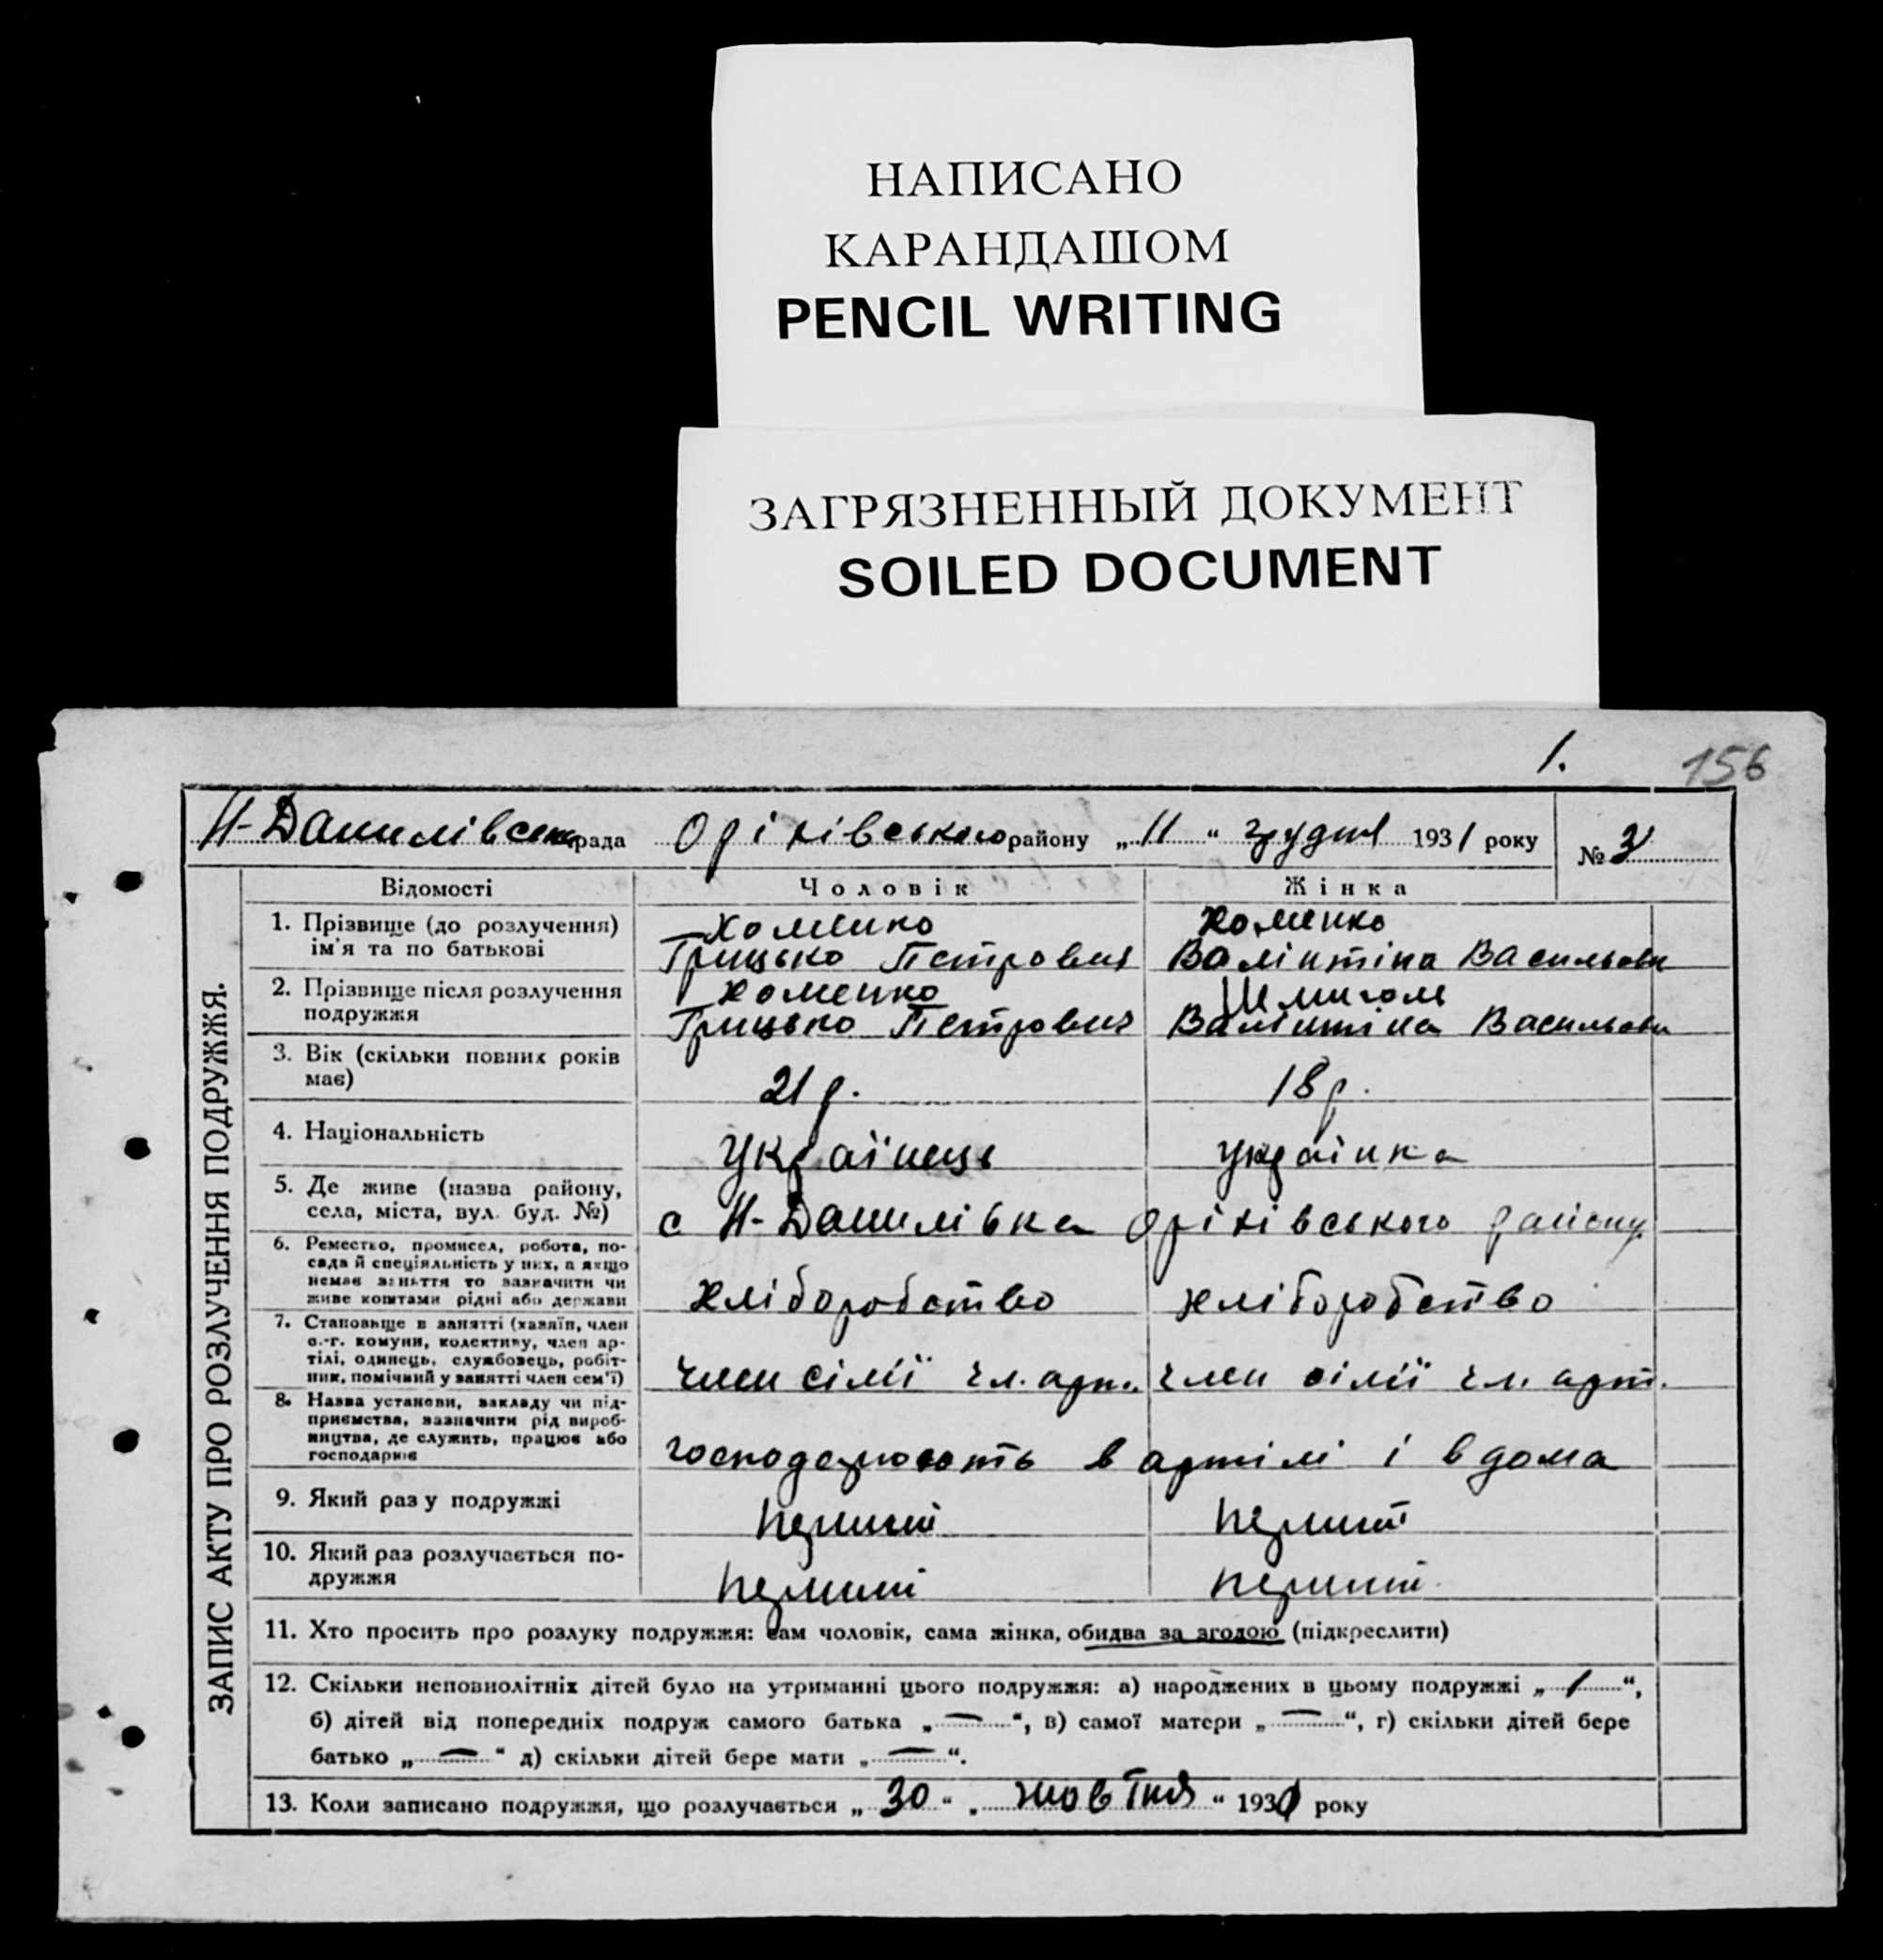 НАПИСАНО
КАРАНДАШОМ
PENCIL WRITING
ЗАГРЯЗНЕННЫЙ ДОКУМЕНТ
SOILED DOCUMENT
1. 156
Н-Данилівська рада Оріхівського району „11“ грудня 1931 року № 3
ЗАПИС АКТУ ПРО РОЗЛУЧЕННЯ ПОДРУЖЖЯ.
Відомості Чоловік Жінка
1. Прізвище (до розлучення) Хоменко Хоменко
ім'я та по батькові Грицько Петрович Валінтіна Васильовн
2. Прізвище після розлучення Хоменко
подружжя Грицько Петрович Валінтіна Васильовн
3. Вік (скільки повних років
має) 21 р. 18 р.
4. Національність Українець українка
5. Де живе (назва району,
села, міста, вул. буд. №) с Н-Данилівка Оріхівського району
6. Ремество, промисел, робота, по-
сада й спеціяльність у них, а якщо
немає заняття то зазначити чи
живе коштами рідні або держави хліборобство хліборобство
7. Становище в занятті (хазяїн, член
с.-г. комуни, колективу, член ар-
тілі, одинець, службовець, робіт-
ник, помічний у занятті член сем'ї) член сімії чл. арт. член сімії чл. арт.
8. Назва установи, закладу чи під-
приємства, зазначити рід вироб-
ництва, де служить, працює або
господарює господарюють в артілі і вдома
9. Який раз у подружжі перший перший
10. Який раз розлучається по-
дружжя перший перший
11. Хто просить про розлуку подружжя: сам чоловік, сама жінка, обидва за згодою (підкреслити)
12. Скільки неповнолітніх дітей було на утриманні цього подружжя: а) народжених в цьому подружжі „1“,
б) дітей від попередніх подруж самого батька „—“, в) самої матери „—“, г) скільки дітей бере
батько „—“ д) скільки дітей бере мати „—“.
13. Коли записано подружжя, що розлучається „30“ „жовтня“ 1930 року